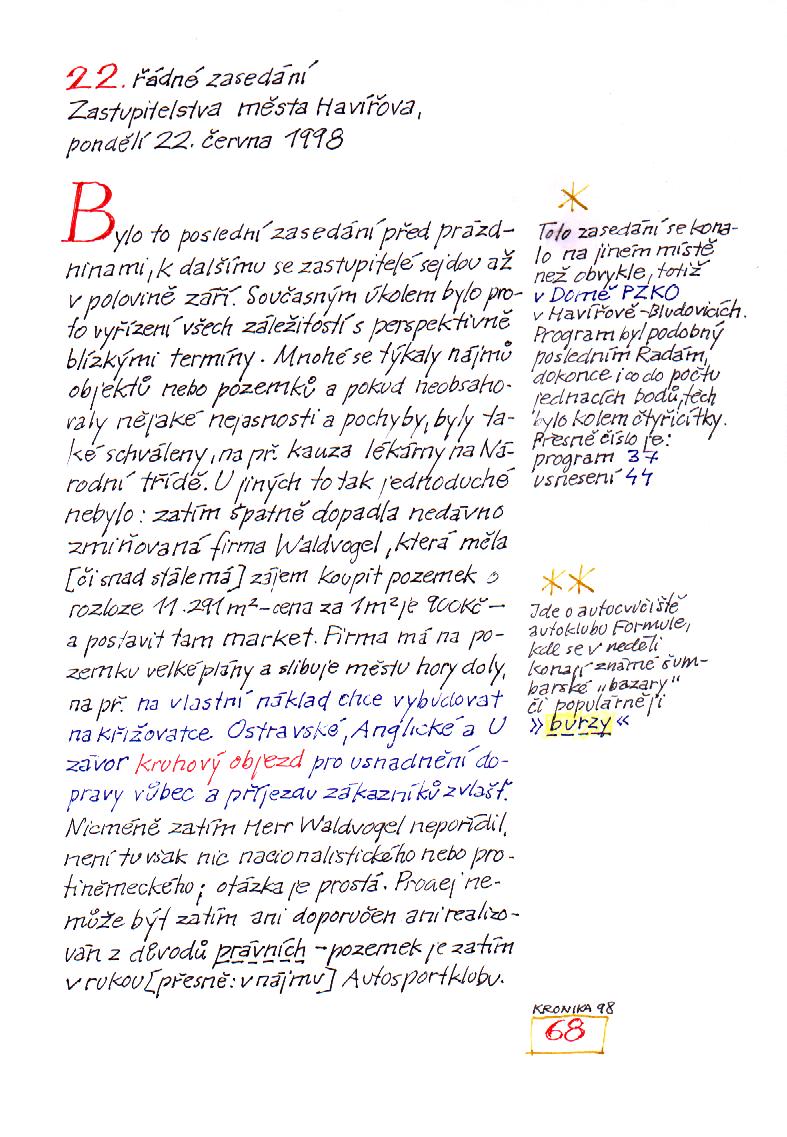 22. řádné zasedání
Zastupitelstva města Havířova,
pondělí 22. června 1998
Bylo to poslední zasedání před prázd-
ninami, k dalšímu se zastupitelé sejdou až
v polovině září. Současným úkolem bylo pro-
to vyřízení všech záležitostí s perspektivně
blízkými termíny. Mnohé se týkaly nájmů
objektů nebo pozemků a pokud neobsaho-
valy nějaké nejasnosti a pochyby, byly ta-
ké schváleny, na př. kauza lékárny na Ná-
rodní třídě. U jiných to tak jednoduché
nebylo: zatím špatně dopadla nedávno
zmiňovaná firma Waldvogel, která měla
[či snad stále má] zájem koupit pozemek o
rozloze 11.291 m² – cena za 1m² je 900Kč –
a postavit tam market. Firma má na po-
zemku velké plány a slibuje městu hory doly,
na př. na vlastní náklad chce vybudovat
na křižovatce Ostravské, Anglické a U
závor kruhový objezd pro usnadnění do-
pravy vůbec a příjezdu zákazníků zvlášť.
Nicméně zatím Herr Waldvogel nepořídil,
není tu však nic nacionalistického nebo pro-
tiněmeckého; otázka je prostá. Prodej ne-
může být zatím ani doporučen ani realizo-
ván z důvodů právních – pozemek je zatím
v rukou [přesně: v nájmu] Autosportklubu.
*
Toto zasedání se kona-
lo na jiném místě
než obvykle, totiž
v Domě PZKO
v Havířově-Bludovicích.
Program byl podobný
posledním Radám,
dokonce i co do počtu
jednacích bodů, těch
bylo kolem čtyřicítky.
Přesné číslo je:
program 37
usnesení 44
**
Jde o autocvičiště
autoklubu Formule,
kde se v neděli
konají známé šum-
barské „bazary"
či populárněji
» burzy «
KRONIKA 98
68